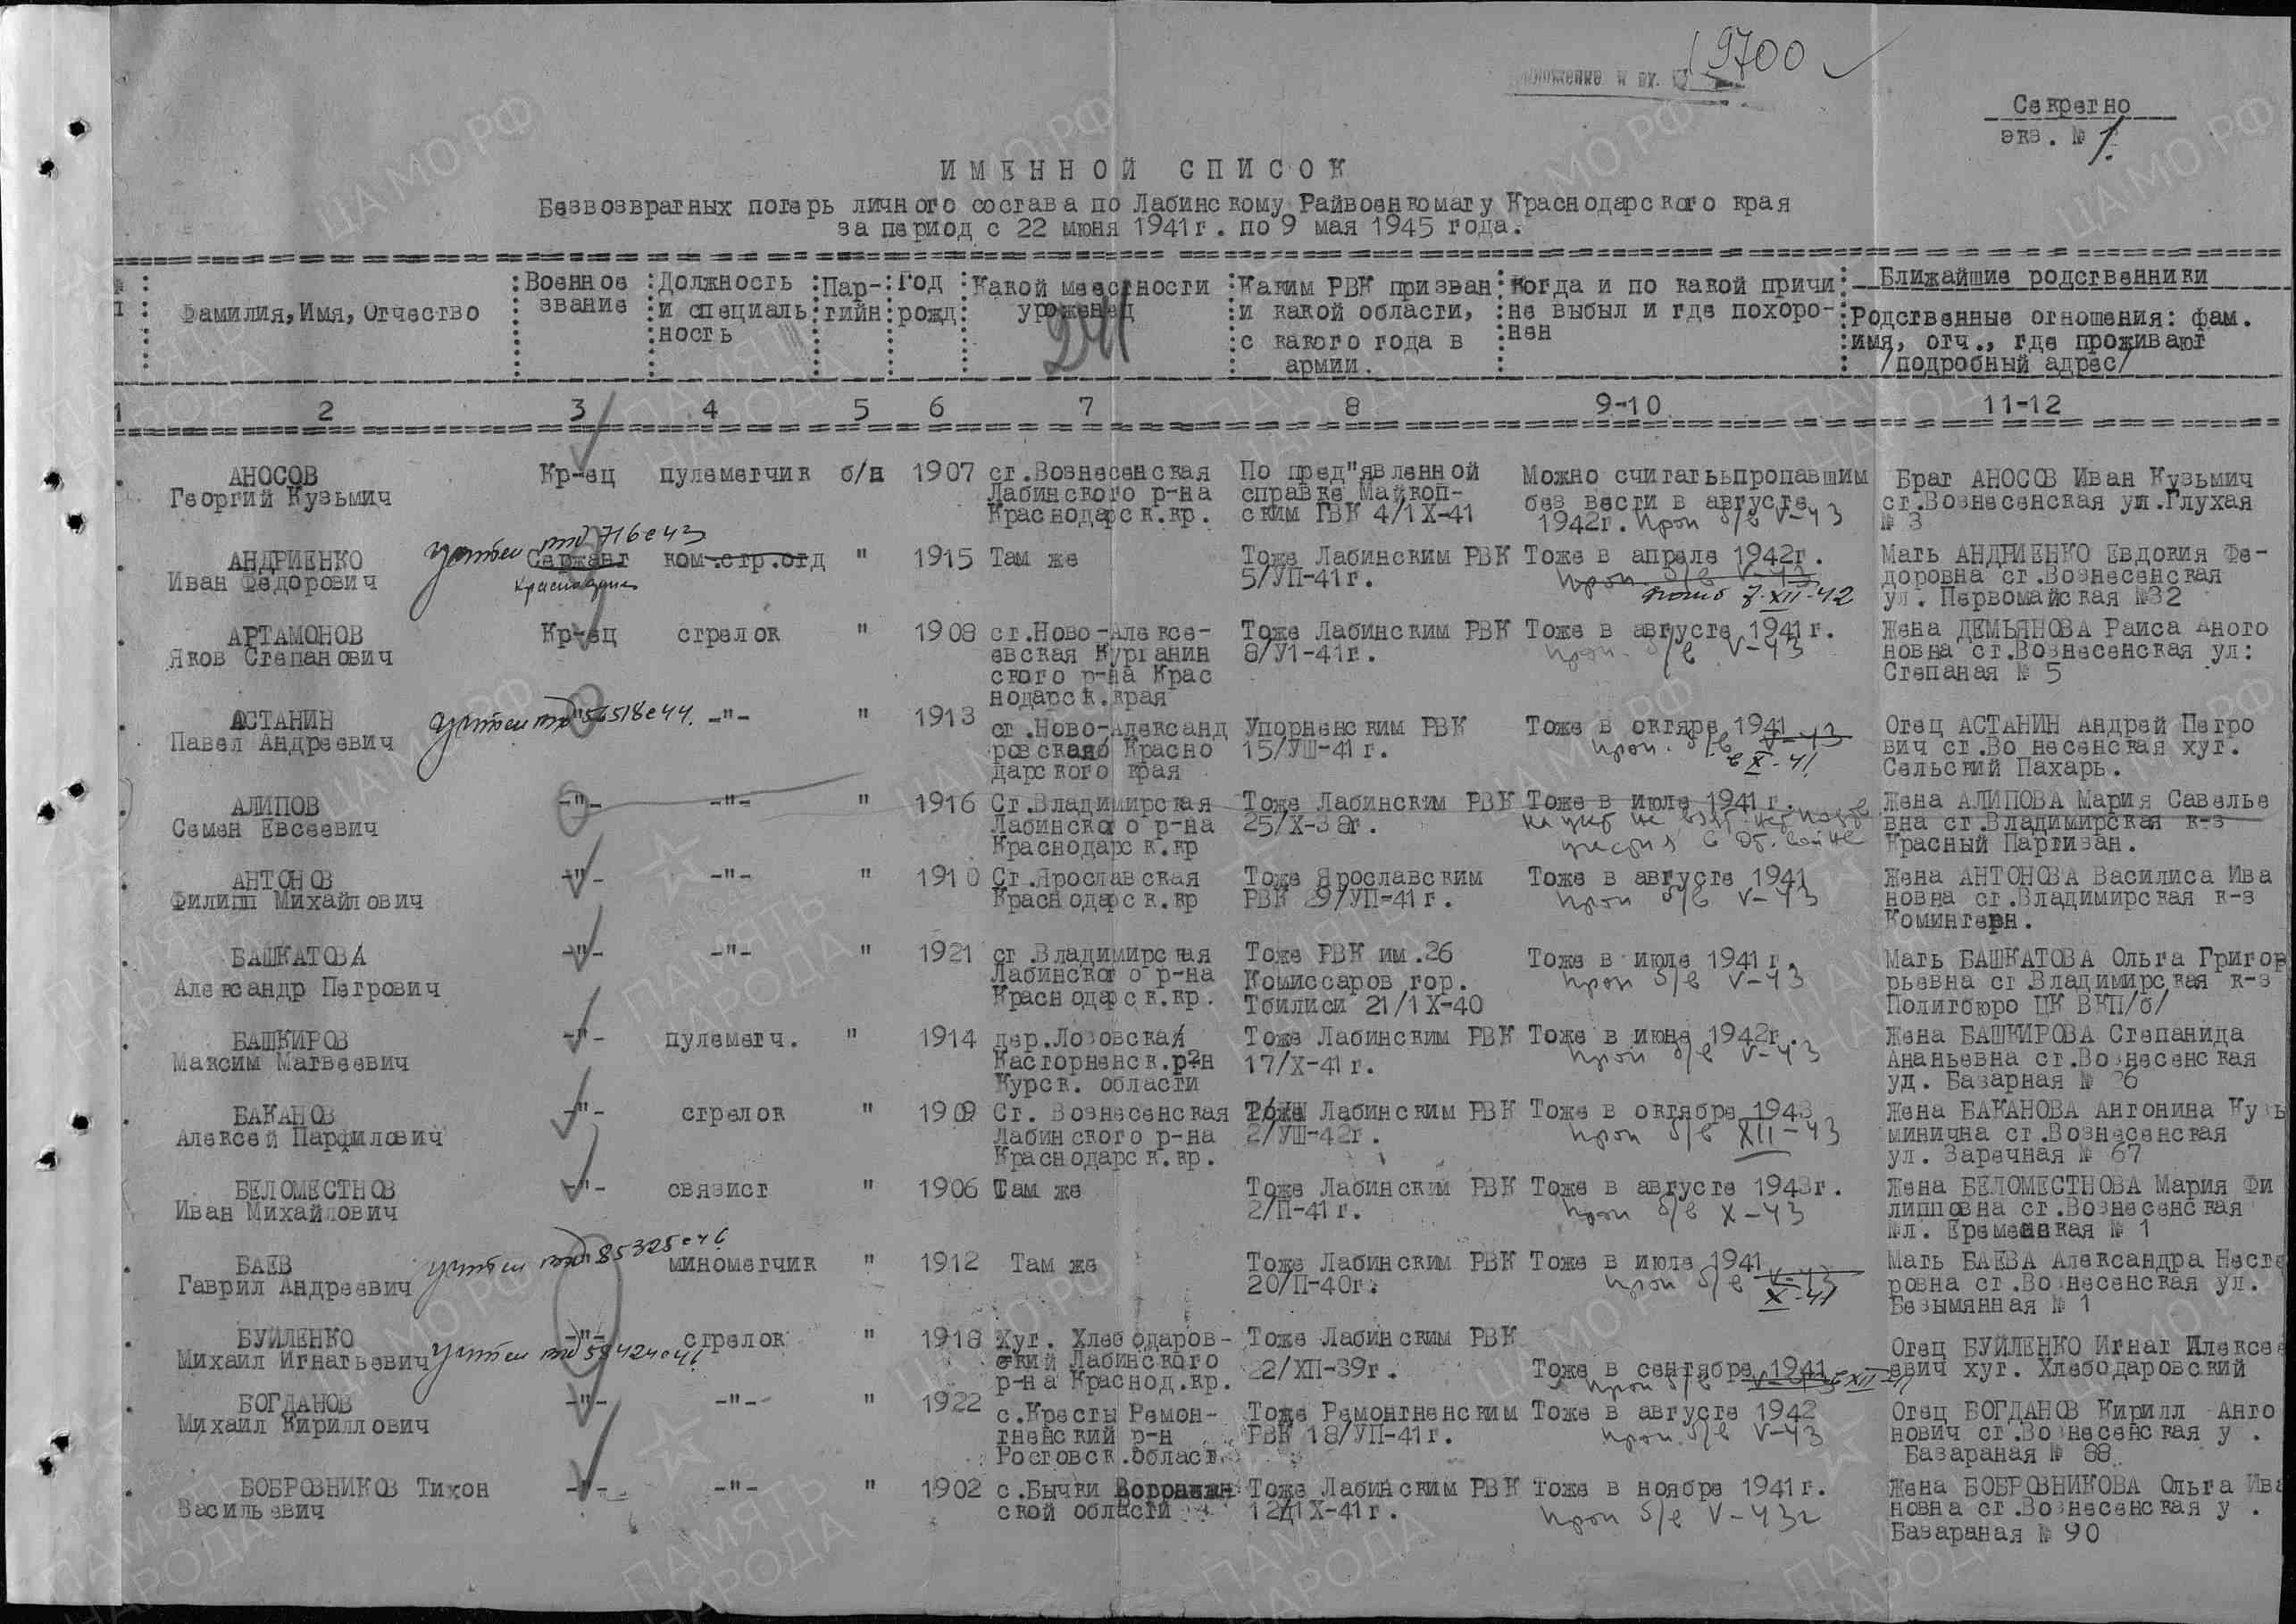 19700
Секретно
экз. № 1.
ИМЕННОЙ СПИСОК
Безвозвратных потерь личного состава по Лабинскому Райвоенкомату Краснодарского края
за период с 22 июня 1941г. по 9 мая 1945 года.
Фамилия, Имя, Отчество
Военное звание
Должность и специаль ность
Пар- тийн
Год рожд
Какой меестности уроженец
241
Каким РВК призван и какой области, с какого года в армии.
Когда и по какой причи не выбыл и где похоро- нен
Ближайшие родственники
Родственные отношения: фам.
имя, отч., где проживают
/подробный адрес/
1 2 3 4 5 6 7 8 9-10 11-12
АНОСОВ Кр-ец пулеметчик б/п 1907 ст.Вознесенская По пред"явленной Можно считатььпропавшим Брат АНОСОВ Иван Кузьмич
Георгий Кузьмич Лабинского р-на справке Майкоп- без вести в августе ст.Вознесенская ул.Глухая
Краснодарск.кр. ским ГВК 4/1Х-41 1942г. проп б/в V-43 № 3
учтен 716с43
АНДРИЕНКО Сержант ком.стр.отд " 1915 Там же Тоже Лабинским РВК Тоже в апреле 1942г. Мать АНДРИЕНКО Евдокия Фе-
Иван Федорович 5/УП-41г. проп б/в V-43 доровна ст.Вознесенская
погиб 7.XII-42 ул. Первомайская №32
АРТАМОНОВ Кр-ец стрелок " 1908 ст.Ново-Алексе- Тоже Лабинским РВК Тоже в августе 1941г. Жена ДЕМЬЯНОВА Раиса Аното
Яков Степанович евская Курганин 8/У1-41г. проп. б/в V-43 новна ст.Вознесенская ул:
ского р-на Крас Степаная № 5
нодарск.края
АСТАНИН учтен 56518с44. -"- " 1913 ст.Ново-Александ Упорненским РВК Тоже в октяре 1941 Отец АСТАНИН Андрей Петро
Павел Андреевич Красно 15/УШ-41г. проп. б/в V-43 вич ст.Во несенская хут.
дарского края в X-41 Сельский Пахарь.
АЛИПОВ -"- -"- " 1916 Ст.Владимирская Тоже Лабинским РВК Тоже в июле 1941г. Жена АЛИПОВА Мария Савелье
Семен Евсеевич Лабинского р-на 25/Х-38г. вна ст.Владимирская к-з
Краснодарск.кр Красный Партизан.
АНТОНОВ -"- -"- " 1910 Ст.Ярославская Тоже Ярославским Тоже в августе 1941 Жена АНТОНОВА Василиса Ива
Филипп Михайлович Краснодарск.кр РВК 29/УП-41г. проп б/в V-43 новна ст.Владимирская к-з
Коминтерн.
БАШКАТОВА -"- -"- " 1921 ст.Владимирская Тоже РВК им.26 Тоже в июле 1941г. Мать БАШКАТОВА Ольга Григор
Александр Петрович Лабинского р-на Комиссаров гор. проп б/в V-43 рьевна ст.Владимирская к-з
Краснодарск.кр. Тбилиси 21/1Х-40 Политбюро ЦК ВКП/б/
БАШКИРОВ -"- пулеметч. " 1914 дер.Лозовская Тоже Лабинским РВК Тоже в июне 1942г. Жена БАШКИРОВА Степанида
Максим Матвеевич Касторненск.р-н 17/Х-41г. проп б/в V-43 Ананьевна ст.Вознесенская
Курск. области уд. Базарная № 26
БАКАНОВ -"- стрелок " 1909 Ст. Вознесенская Тоже Лабинским РВК Тоже в октябре 1943 Жена БАКАНОВА Антонина Кузь
Алексей Парфилович Лабинского р-на 2/УШ-42г. проп б/в XII-43 минична ст.Вознесенская
Краснодарск.кр. ул. Заречная № 67
БЕЛОМЕСТНОВ -"- связист " 1906 Там же Тоже Лабинским РВК Тоже в августе 1943г. Жена БЕЛОМЕСТНОВА Мария Фи
Иван Михайлович 2/П-41г. проп б/в X-43 липповна ст.Вознесенская
Еременская № 1
БАЕВ учтен 85325с46 минометчик " 1912 Там же Тоже Лабинским РВК Тоже в июле 1941 Мать БАЕВА Александра Несте
Гаврил Андреевич 20/П-40г. проп б/в V-43 ровна ст.Вознесенская ул.
X-41 Безымянная № 1
БУЙЛЕНКО -"- стрелок " 1918 Хут. Хлебодаров- Тоже Лабинским РВК Отец БУЙЛЕНКО Игнат Алексее
Михаил Игнатьевич учтен ский Лабинского 22/ХП-39г. Тоже в сентябре 1941 евич хут. Хлебодаровский
р-на Краснод.кр. проп б/в
БОГДАНОВ -"- -"- " 1922 с.Кресты Ремон- Тоже Ремонтненским Тоже в августе 1942 Отец БОГДАНОВ Кирилл Анто
Михаил Кириллович тненский р-н РВК 18/УП-41г. проп. б/в V-43 нович ст.Вознесенская у .
Ростовск.област. Базараная № 88
БОБРОВНИКОВ Тихон -"- -"- " 1902 с.Бычки Воронежн Тоже Лабинским РВК Тоже в ноябре 1941г. Жена БОБРОВНИКОВА Ольга Ива
Васильевич ской области 12/1Х-41г. проп б/в V-43г новна ст.Вознесенская у .
Базараная № 90